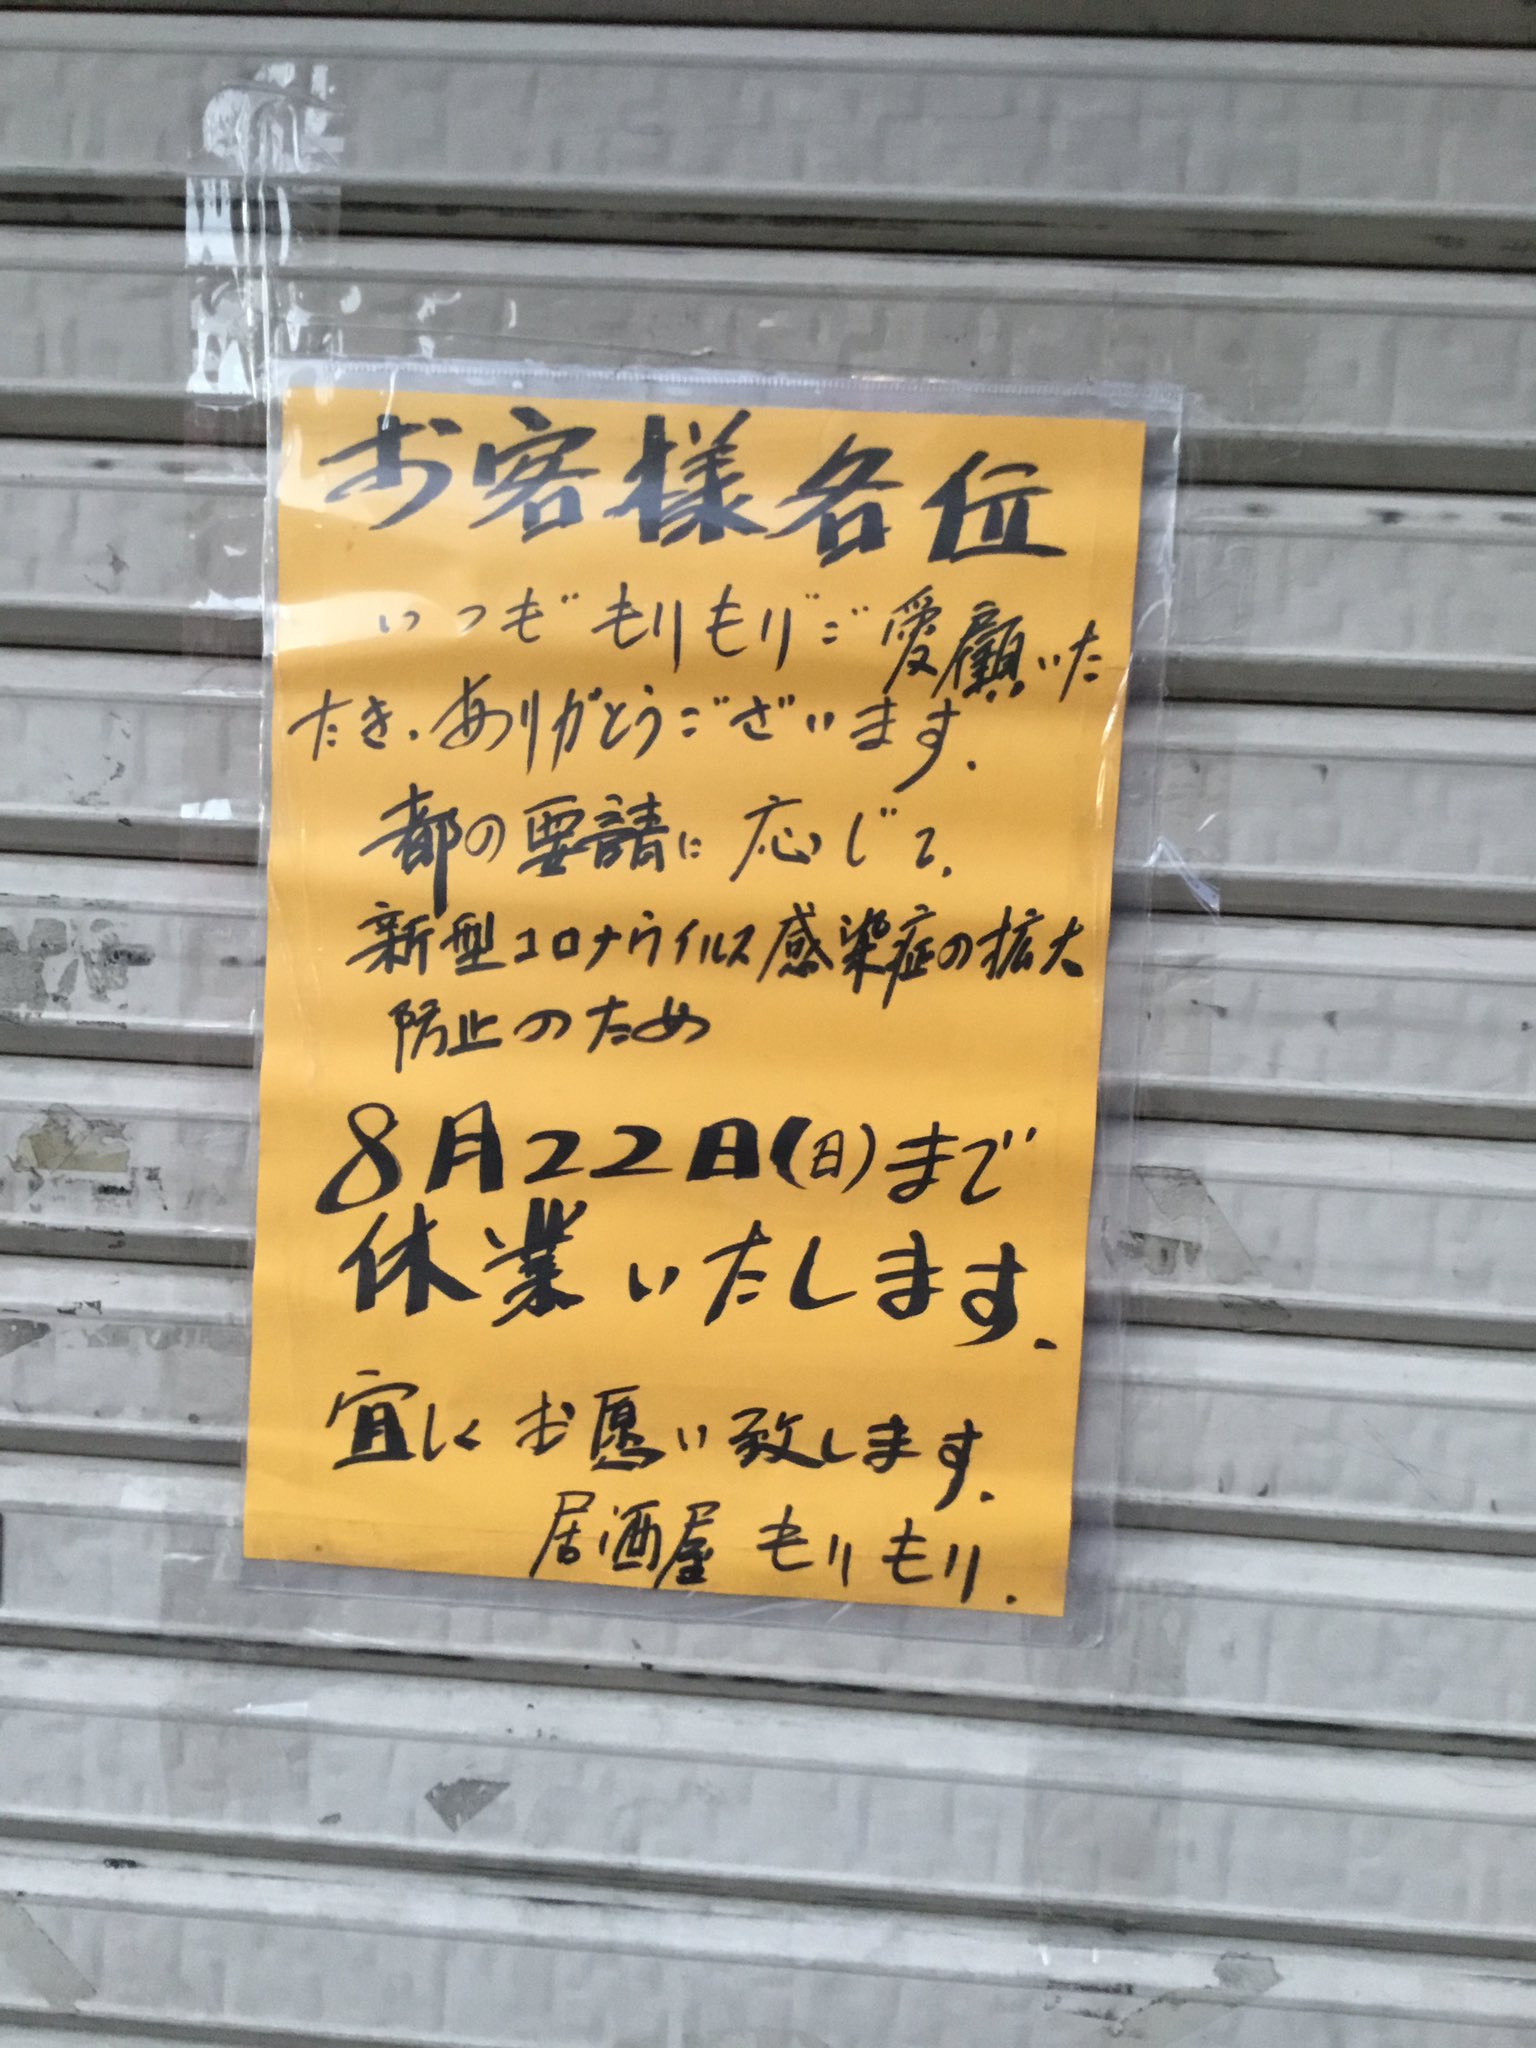 お客様各位
いつももりもりご愛顧いた
だき、ありがとうございます。
都の要請に応じて、
新型コロナウイルス感染症の拡大
防止のため
8月22日(日)まで
休業いたします。
宜しくお願い致します。
居酒屋 もりもり.